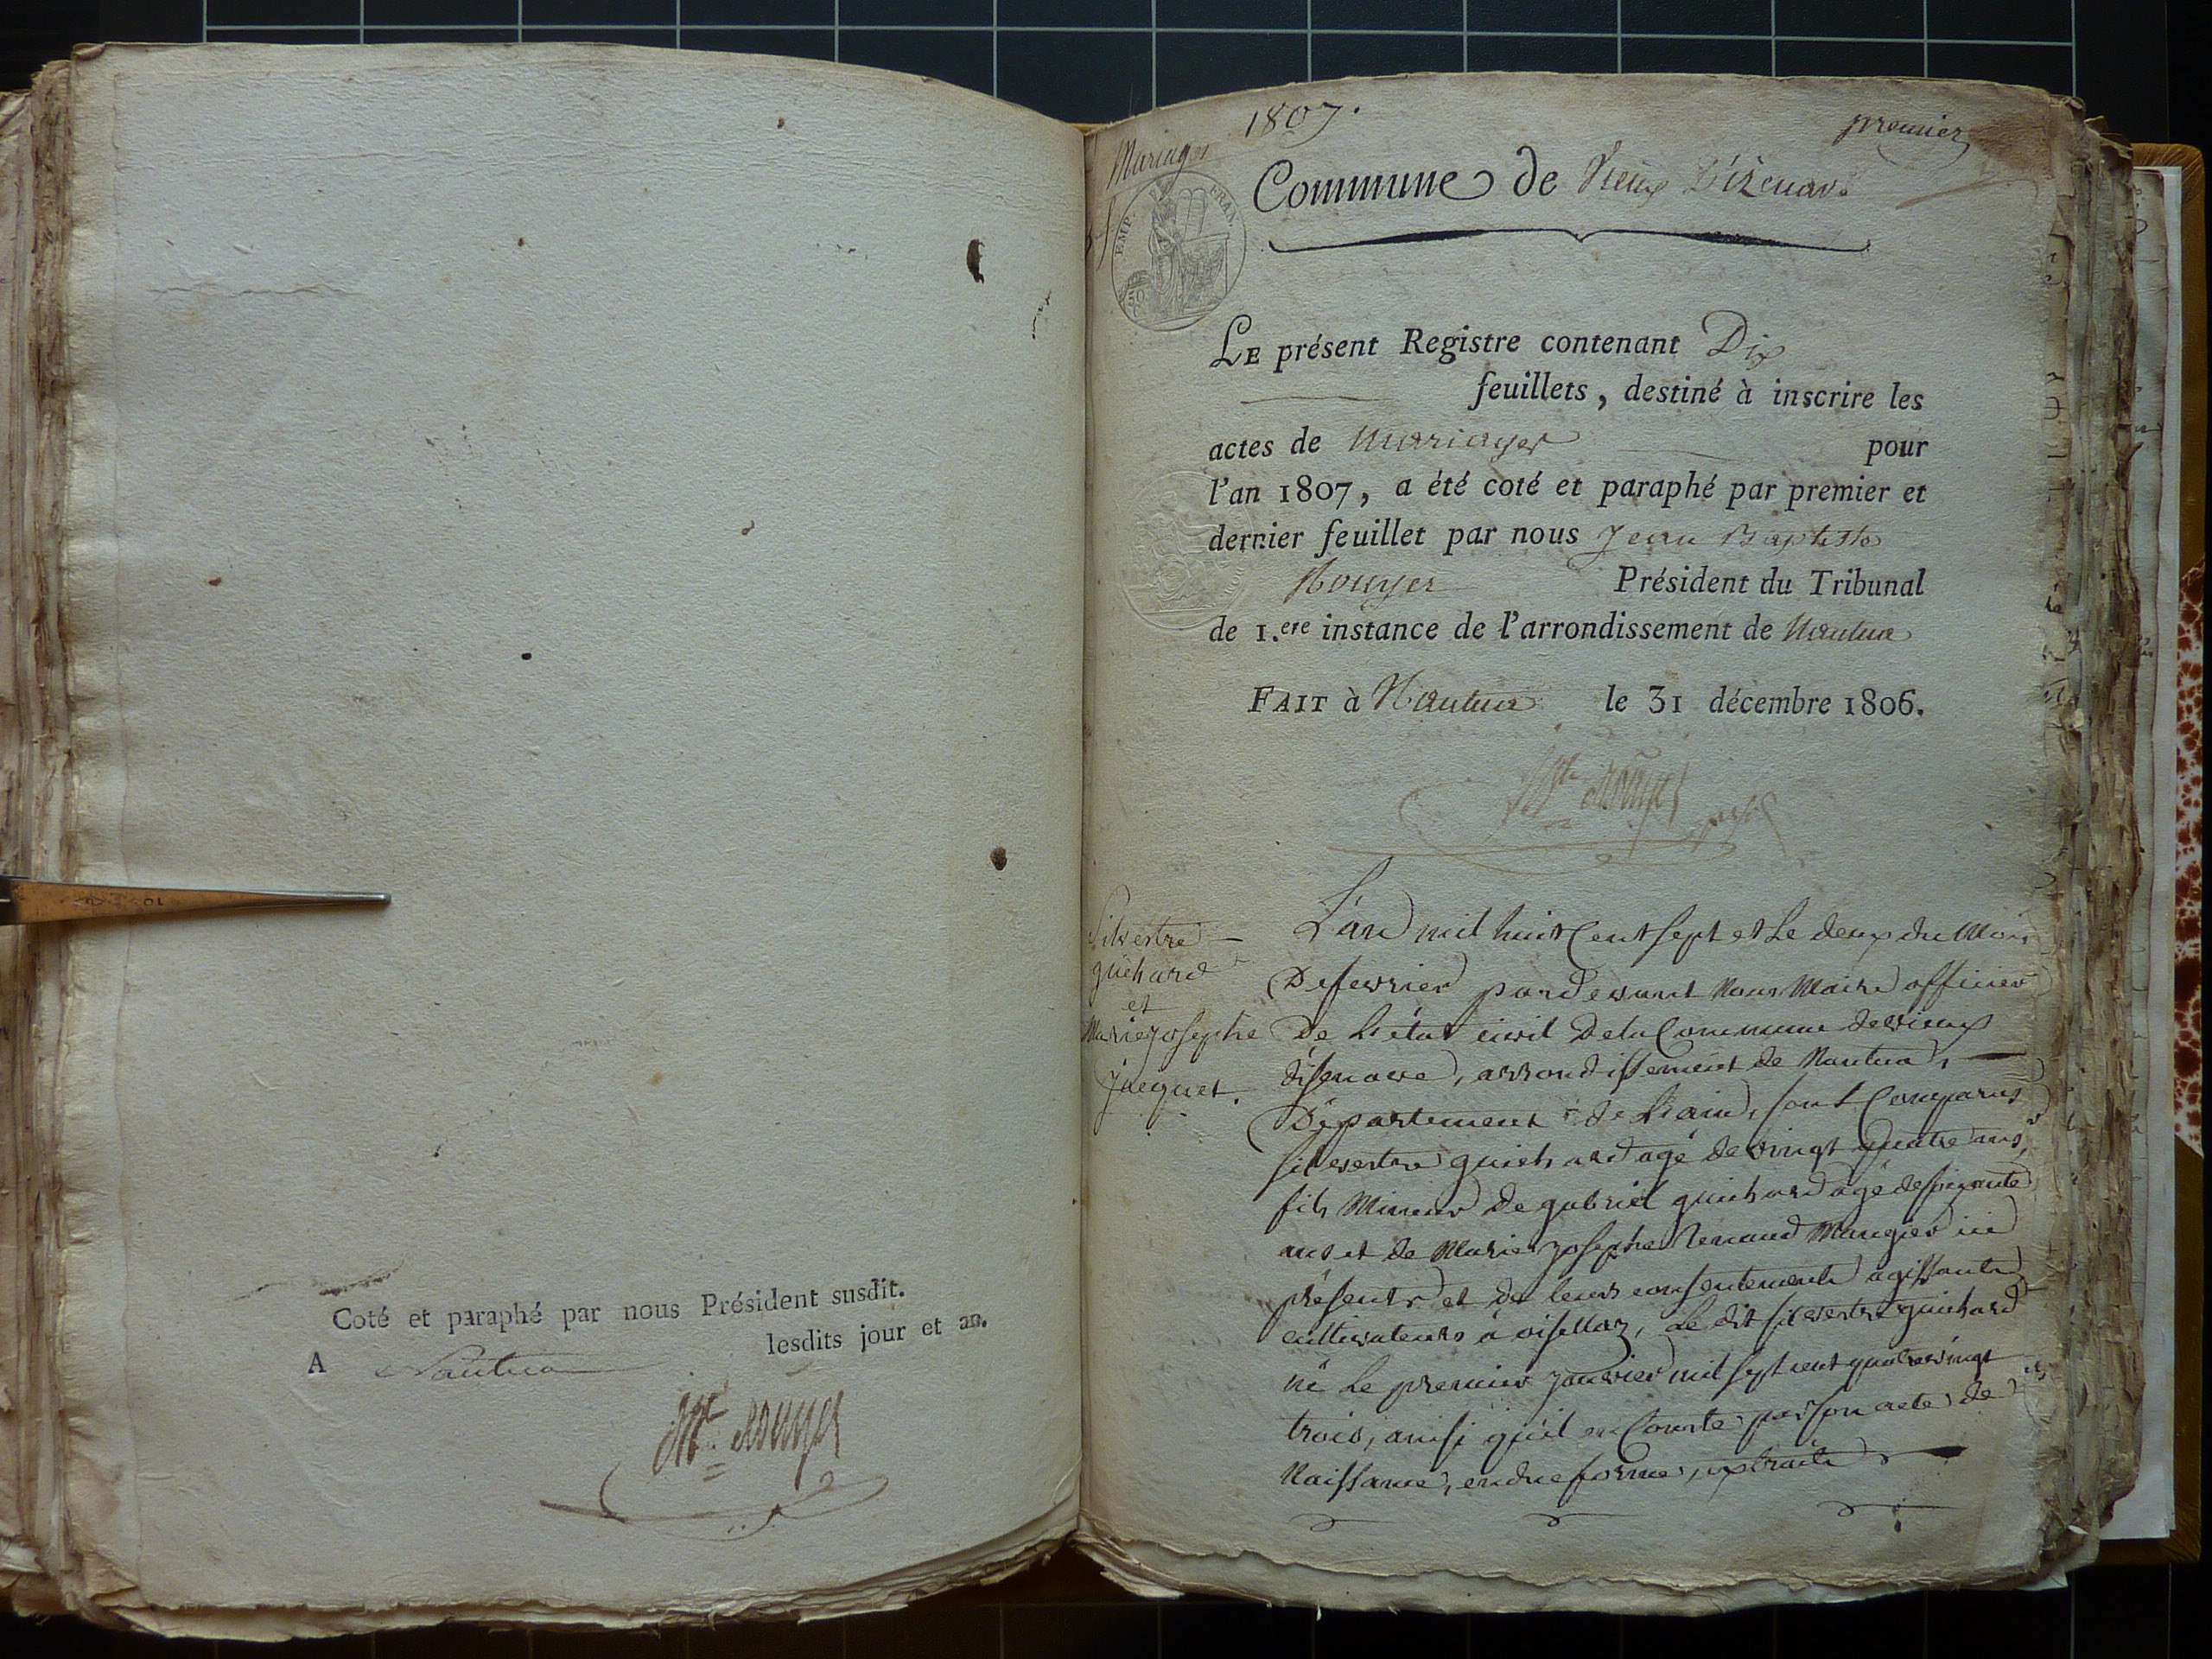 Coté et paraphé par nous Président susdit.
A Nantua lesdits jour et an.
Bte Rouyer
1807.
premier
Mariages
EMP. FRAN.
50
Commune de Vieux D'izenave
LE présent Registre contenant Dix
feuillets, destiné à inscrire les
actes de Mariages pour
l'an 1807, a été coté et paraphé par premier et
dernier feuillet par nous Jean Baptiste
Rouyer Président du Tribunal
de 1.ere instance de l'arrondissement de Nantua
FAIT à Nantua le 31 décembre 1806.
Bte Rouyer
Silvestre
guichard
et
Marie josephe
Jacquet.
L'an mil huit Cent sept et Le deux du Mois
De fevrier pardevant Nous Maire officier
De L'état civil De la Commune de vieux
d'isenave, arrondissement de Nantua,
Département de L'ain, sont Comparus
silvestre guichard agé de vingt quatre ans,
fils Mineur de gabriel guichard agé de soixante
ans et de Marie josephe Renaud Mangier ici
présents et de leurs consentements agissants
cultivateurs à oisellaz, Le dit silvestre guichard
né Le premier janvier mil sept cent quatre vingt
trois, ainsi qu'il en Conste par son acte de
Naissance, en due forme, extraite